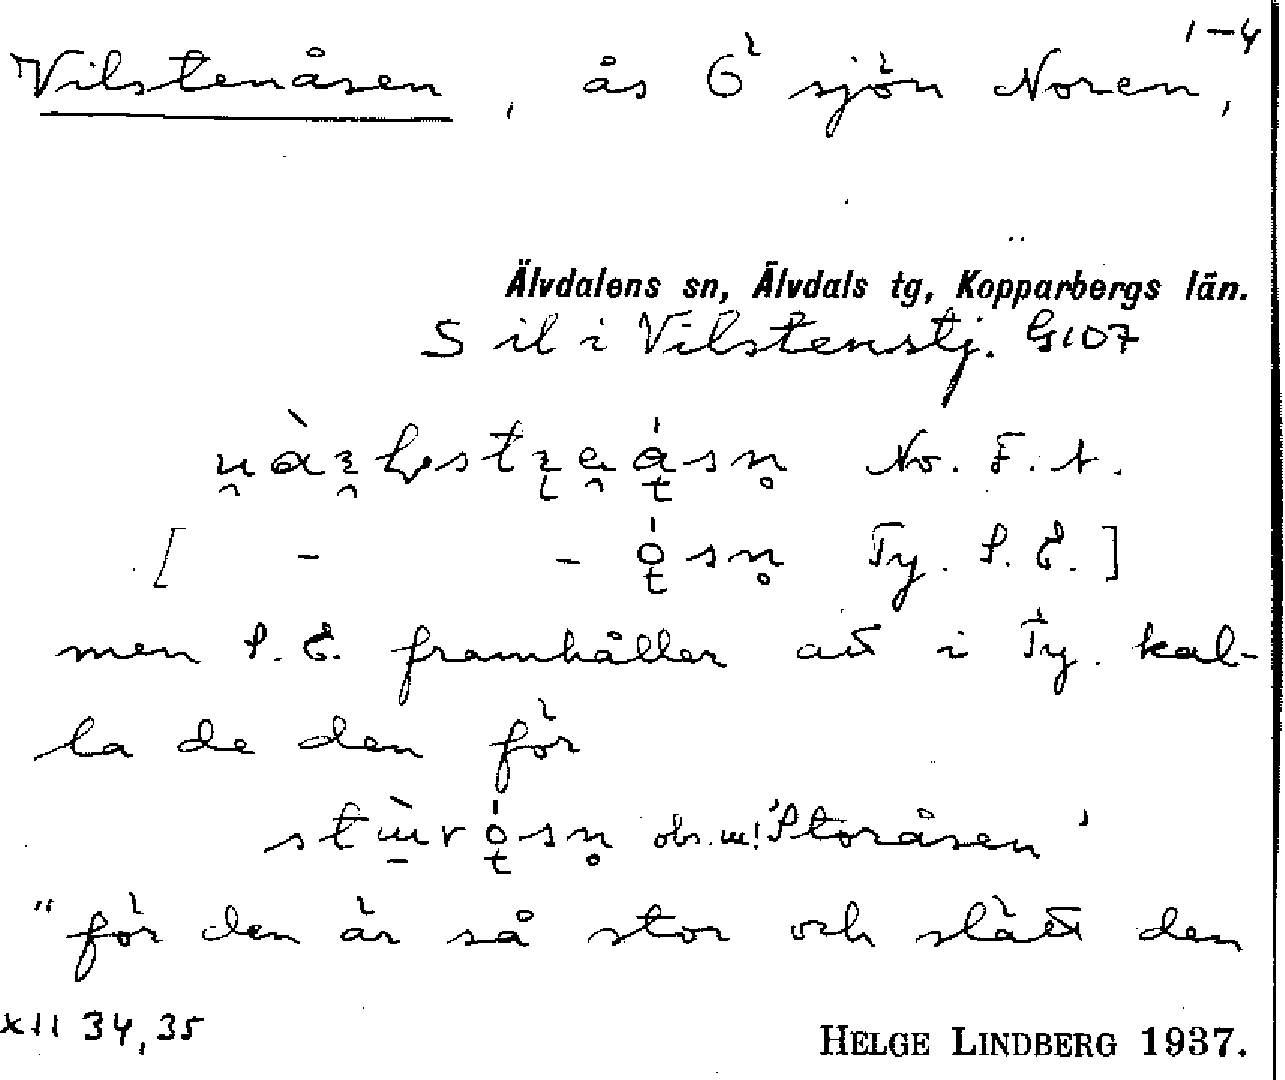 1–4
Vilstenåsen, ås Ö sjön Noren,
Älvdalens sn, Älvdals tg, Kopparbergs län.
S il i Vilstenstj. G107
No. F. A.
[ - - ó̜sn̥ Ty. S. E. ]
men S. E. framhåller att i Ty. kal-
la de den för
obs. ɯ! 'Storåsen'
"för den är så stor och slätt den
XII 34, 35
HELGE LINDBERG 1937.